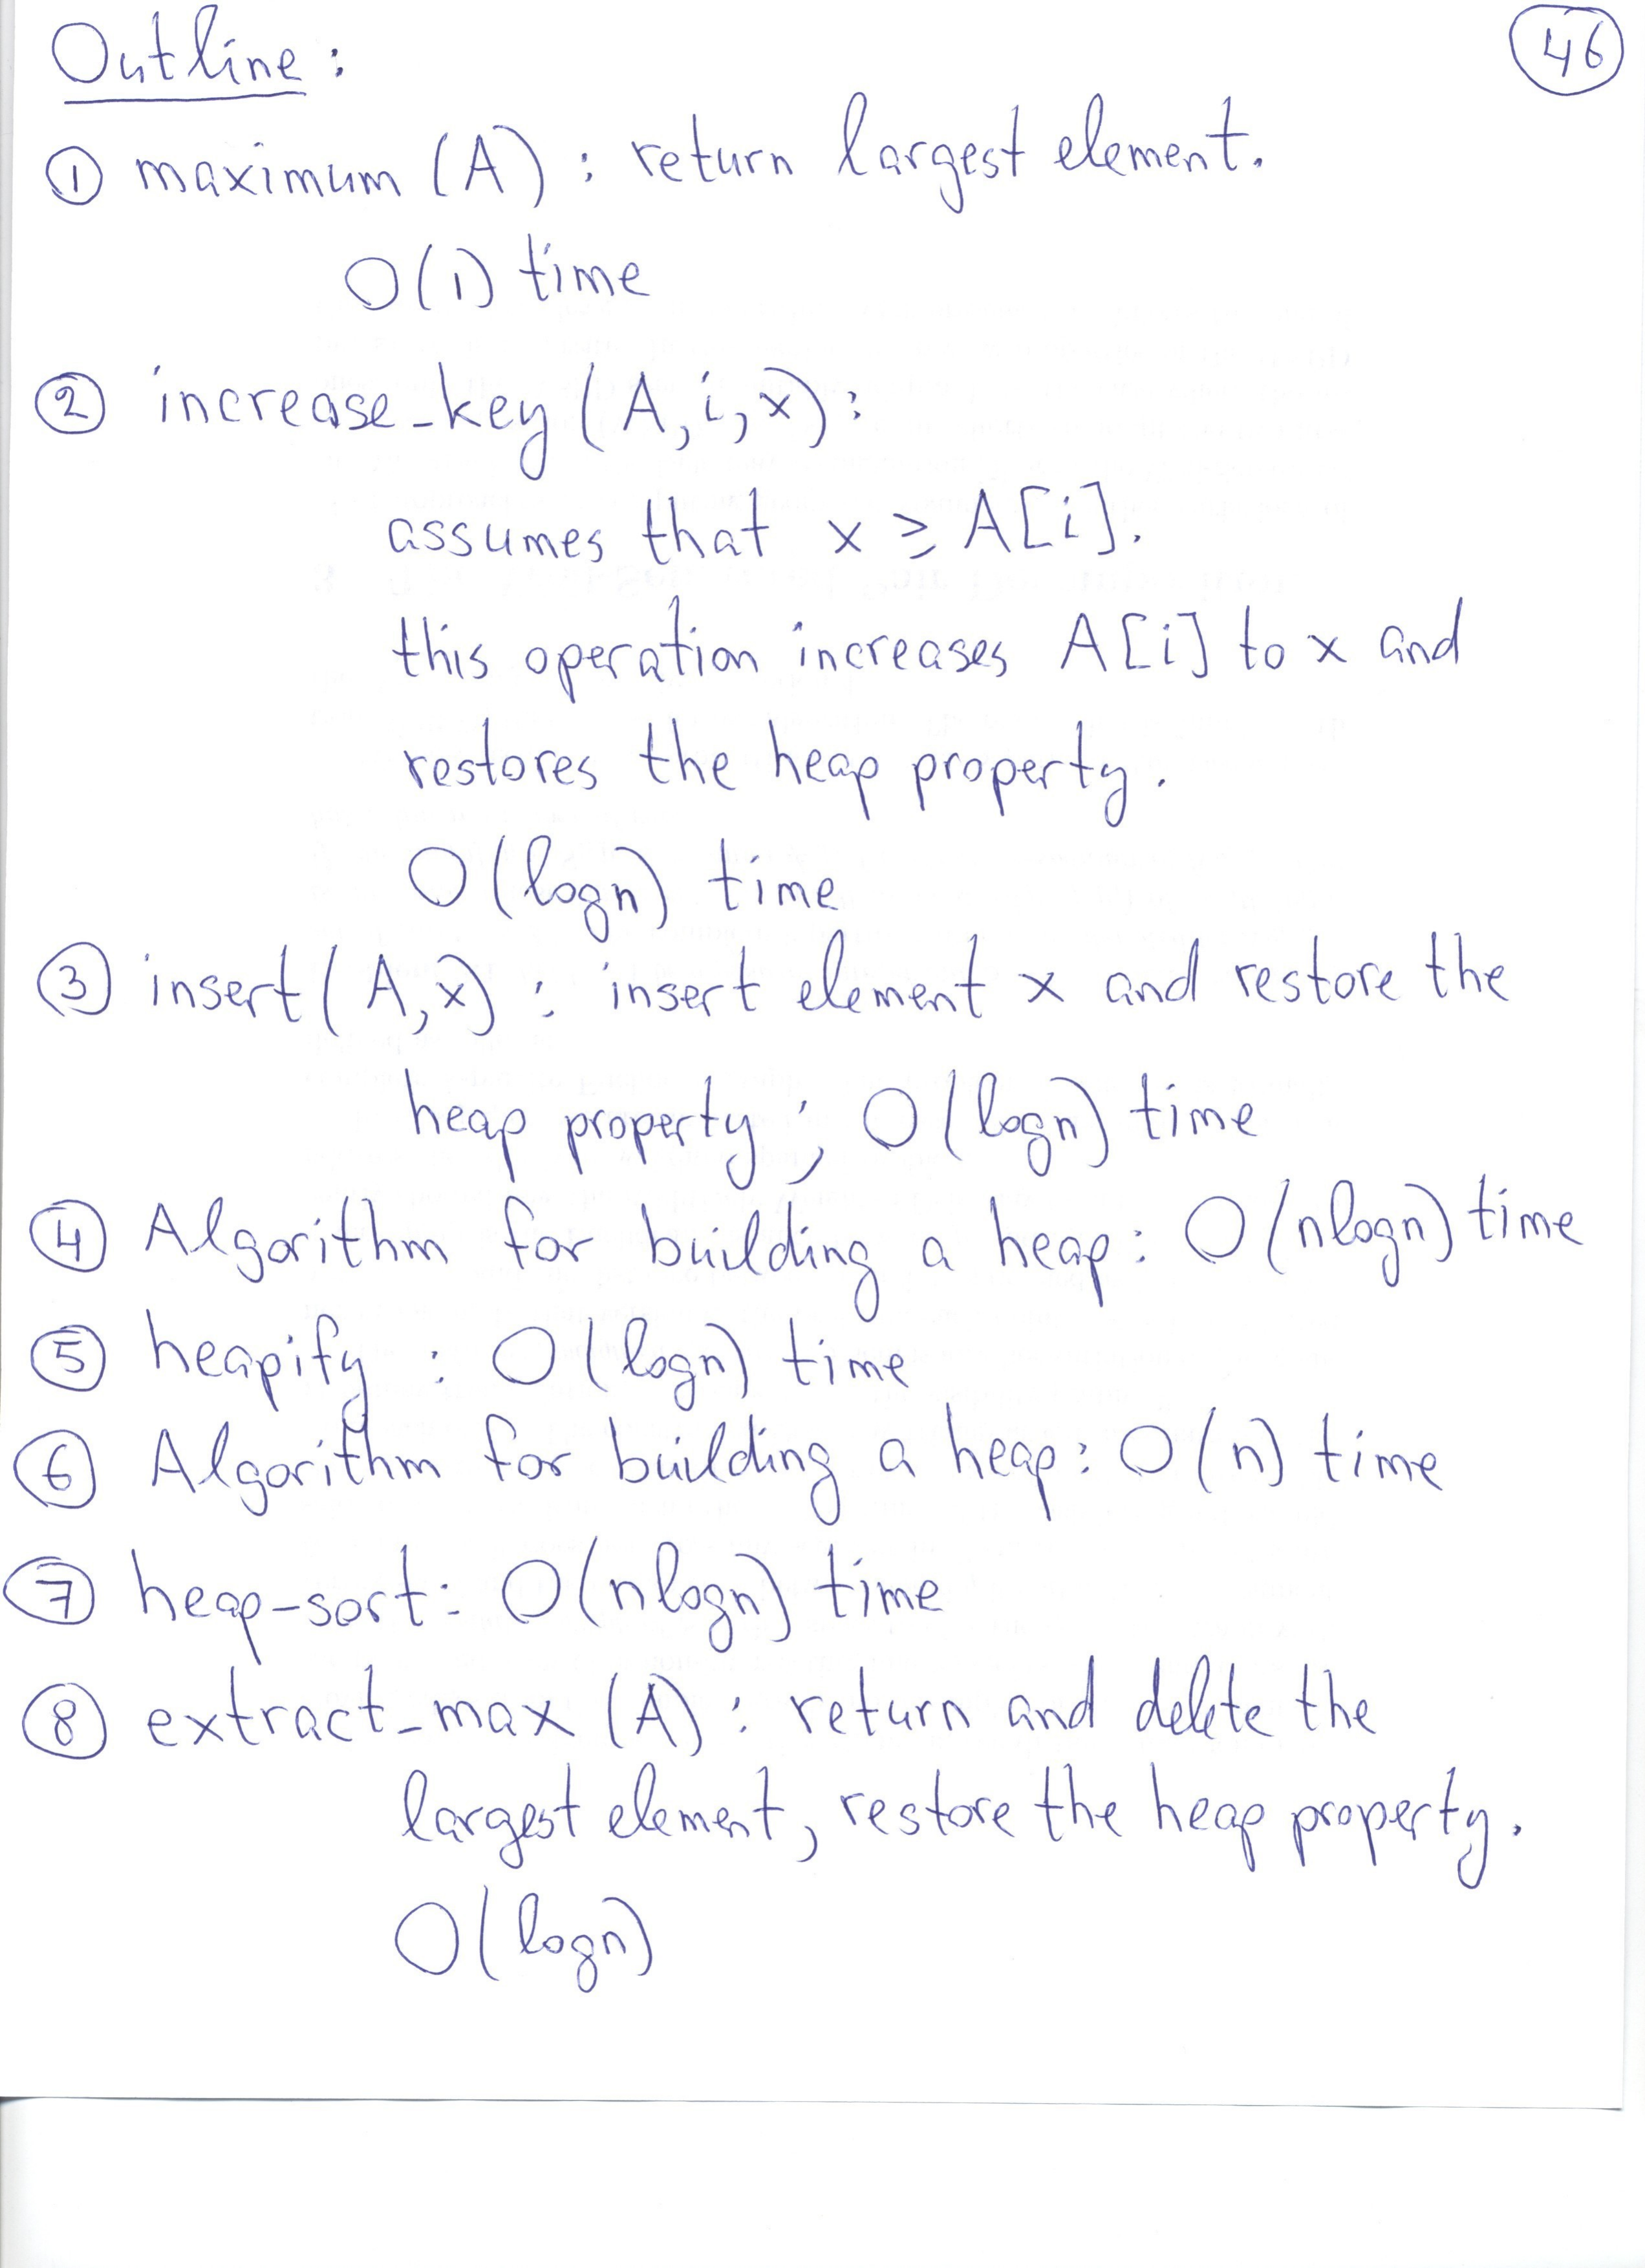 Outline:
46
① maximum (A): return largest element.
O(1) time
② increase_key (A, i, x):
assumes that x ≥ A[i].
this operation increases A[i] to x and
restores the heap property.
O(logn) time
③ insert (A, x): insert element x and restore the
heap property; O(logn) time
④ Algorithm for building a heap: O(nlogn) time
⑤ heapify: O(logn) time
⑥ Algorithm for building a heap: O(n) time
⑦ heap-sort: O(nlogn) time
⑧ extract_max (A): return and delete the
largest element, restore the heap property.
O(logn)